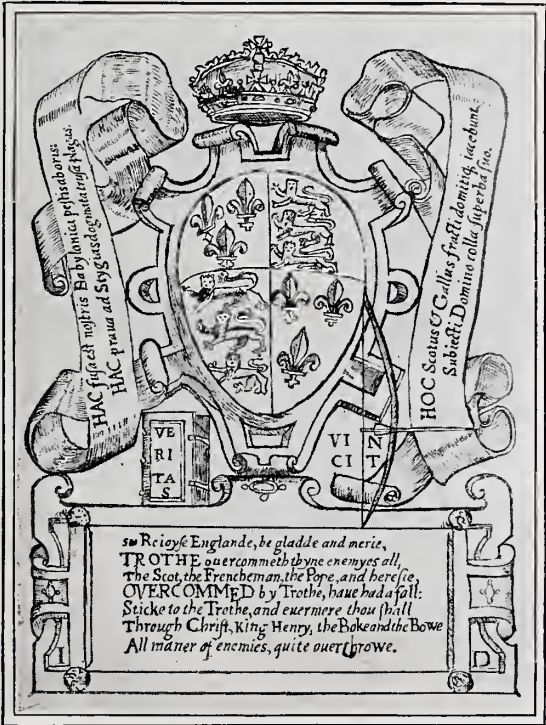 HAC fuſa est noſtris Babylonica peſtisaboris:
HAC praua ad Stygias dogmata truſa plagas.
HOC Scotus & Gallus fracti domitiq; iacebunt,
Subiecti Domino rolla ſuperba ſuo.
VE
RI
TA
S
VI N
CI T
Reioyſe Englande, be gladde and merie,
TROTHE ouercommeth thyne enemyes all,
The Scot, the Frencheman, the Pope, and hereſie,
OVERCOMMED by Trothe, haue had a fall:
Sticke to the Trothe, and euermere thou ſhall
Through Chriſt, King Henry, the Boke and the Bowe
All maner of enemies, quite ouerthrowe.
I D